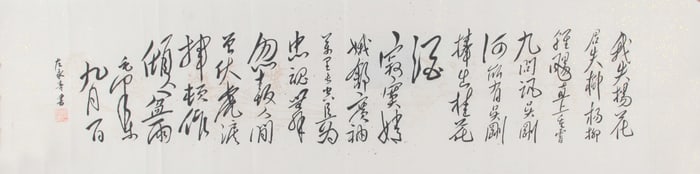 我失杨花
君失柳杨柳
轻飏直上重霄
九问讯吴刚
何所有吴刚
捧出桂花
酒
寂寞嫦
娥舒广袖
万里长空且为
忠魂舞
忽报人间
曾伏虎泪
飞顿作
倾盆雨
九月百